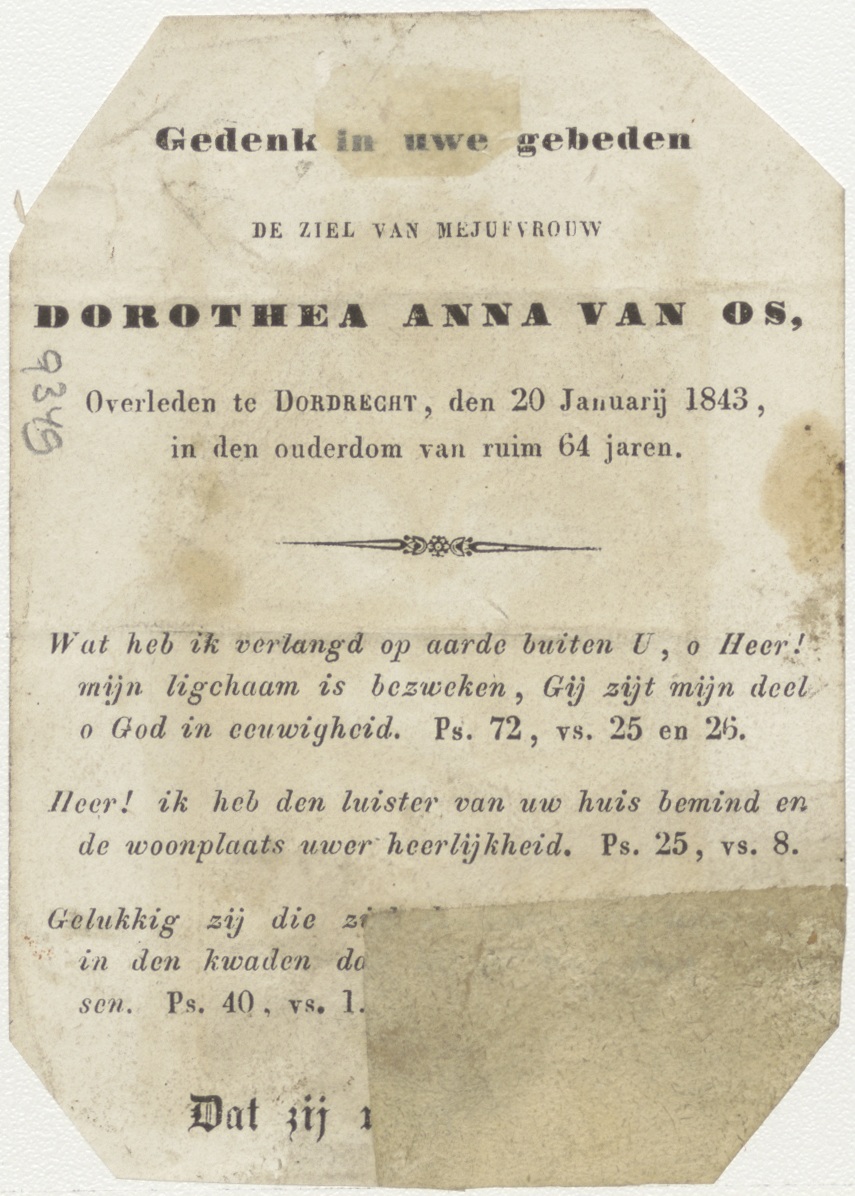 Gedenk in uwe gebeden
DE ZIEL VAN MEJUFVROUW
DOROTHEA ANNA VAN OS,
9349
Overleden te DORDRECHT, den 20 Januarij 1843,
in den ouderdom van ruim 64 jaren.
Wat heb ik verlangd op aarde buiten U, o Heer!
mijn ligchaam is bezweken, Gij zijt mijn deel
o God in eeuwigheid. Ps. 72, vs. 25 en 26.
Heer! ik heb den luister van uw huis bemind en
de woonplaats uwer heerlijkheid. Ps. 25, vs. 8.
Gelukkig zij die
in den kwaden
sen. Ps. 40, vs. 1.
Dat zij